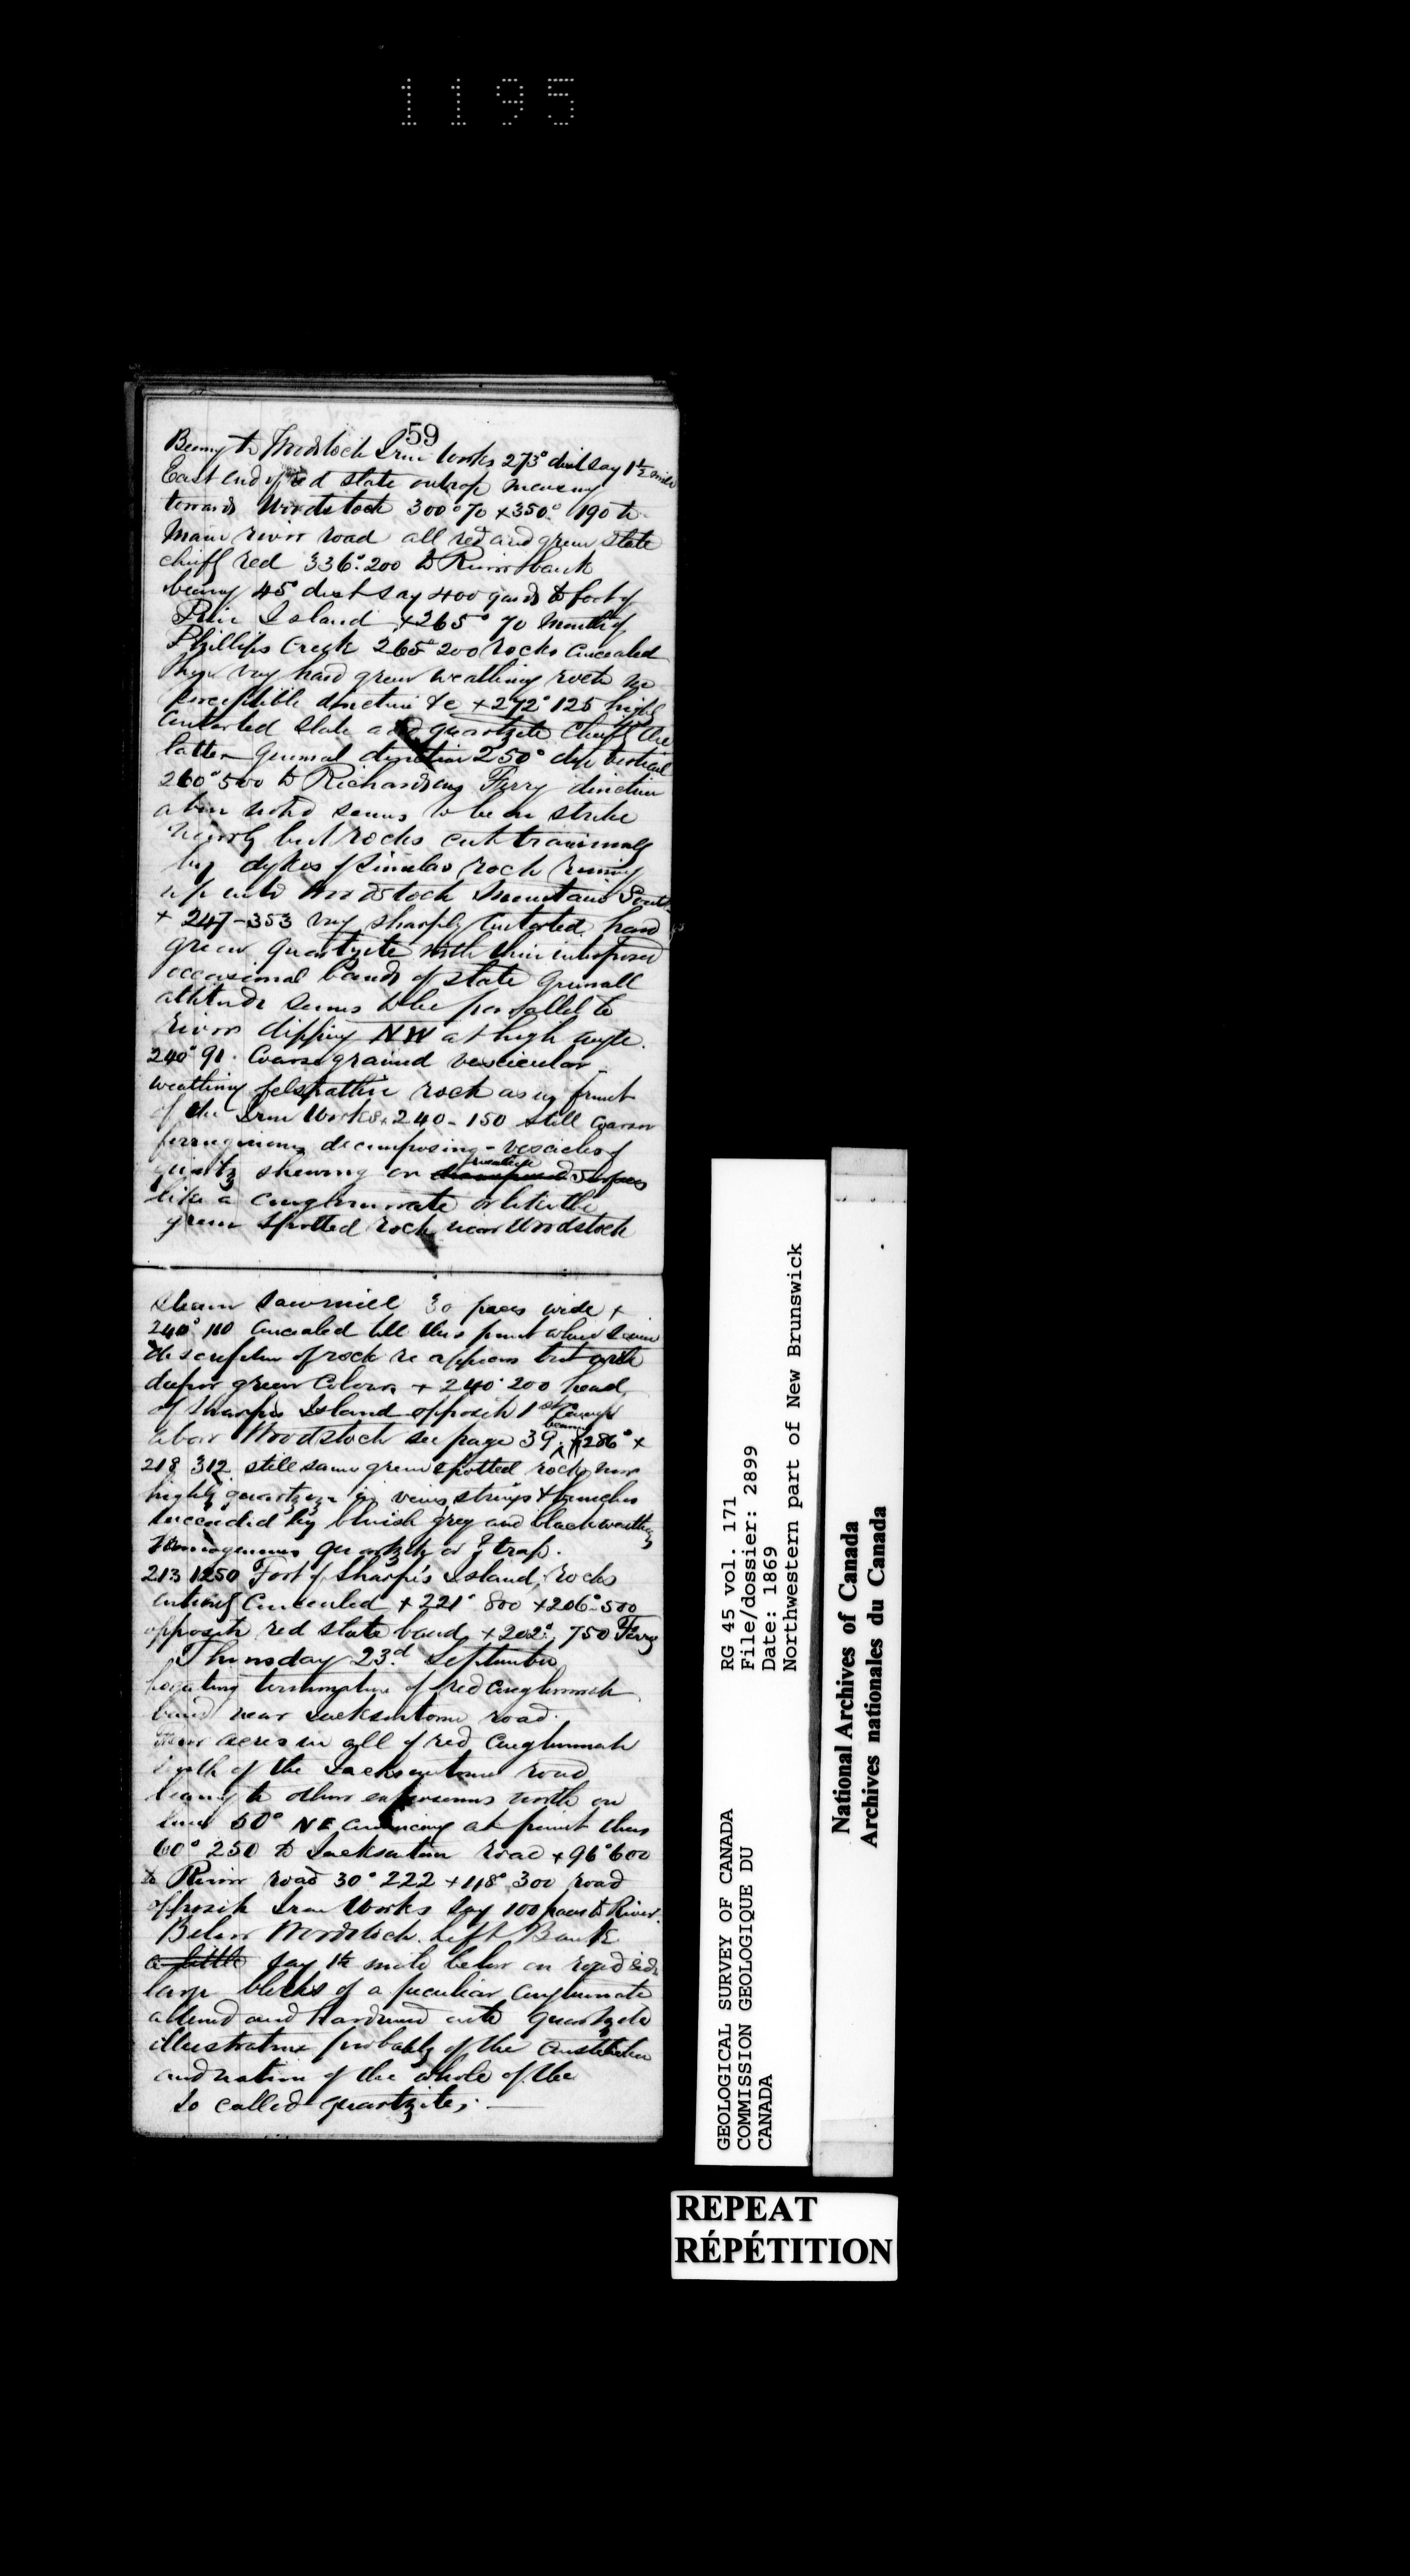 1195
59
Bearing to Woodstock Iron Works 273° dist say 1½ mile
East end of red slate outcrop measuring
towards Woodstock 300° 70 + 350° 190 to
Main river road all red and green slate
chiefly red 336° 200 to River bank
bearing 45° dist say 400 yards to foot of
Island + 265° 70 Mouth of
Phillips Creek 265° 200 rocks concealed
then very hard green weathering rock no
perceptible direction &c + 272° 125 highly
contorted slate and quartzite chiefly the
latter general direction 250° dip vertical
260° 500 to Richardsons Ferry direction
above noted seems to be on strike
nearly but rocks cut transversely
by dykes of similar rock running
up into Woodstock Mountain South
+ 247 - 353 very sharply contorted hard
green quartzite with thin interposed
occasional bands of slate generall
attitude seems to be parallel to
river dipping NW at high angle.
240° 91. Coarse grained vescicular
weathering felspathic rock as in front
of the Iron Works + 240 - 150 still coarser
ferruginous decomposing - vescicles of
quartz shewing on surfaces
like a conglomerate or like the
green spotted rock near Woodstock
steam sawmill 30 paces wide +
240° 110 concealed till this point where same
description of rock re appears but with
deeper green colours + 240° 200 head
of Sharps Island opposite 1st
above Woodstock see page 39 bearing 286° +
218 312 still same green spotted rock, now
highly quartzoze in veins strings & bunches
succeeded by bluish grey and black weathering
Homogenous quartzite or ? trap.
213 1250 Foot of Sharp's Island, rocks
entirely concealed + 221° 800 + 206° 500
opposite red slate band + 202° 750 Ferry
Thursday 23.d September
locating termination of red conglomerate
band near Jacksontown road.
acres in all of red conglomerate
of the Jacksontown road
bearing to other exposures north on
line 50° NE commencing at point thus
60° 250 to Jacksontown road + 96° 600
to River road 30° 222 + 118° 300 road
opposite Iron Works say 100 paces to River.
Below Woodstock Left Bank
a little say 1½ mile below on road side
large blocks of a peculiar conglomerate
altered and hardened into quartzite
illustrative probably of the constitution
and nation of the whole of the
so called quartzites. —
GEOLOGICAL SURVEY OF CANADA
COMMISSION GEOLOGIQUE DU
CANADA
RG 45 vol. 171
File/dossier: 2899
Date: 1869
Northwestern part of New Brunswick
National Archives of Canada
Archives nationales du Canada
REPEAT
RÉPÉTITION